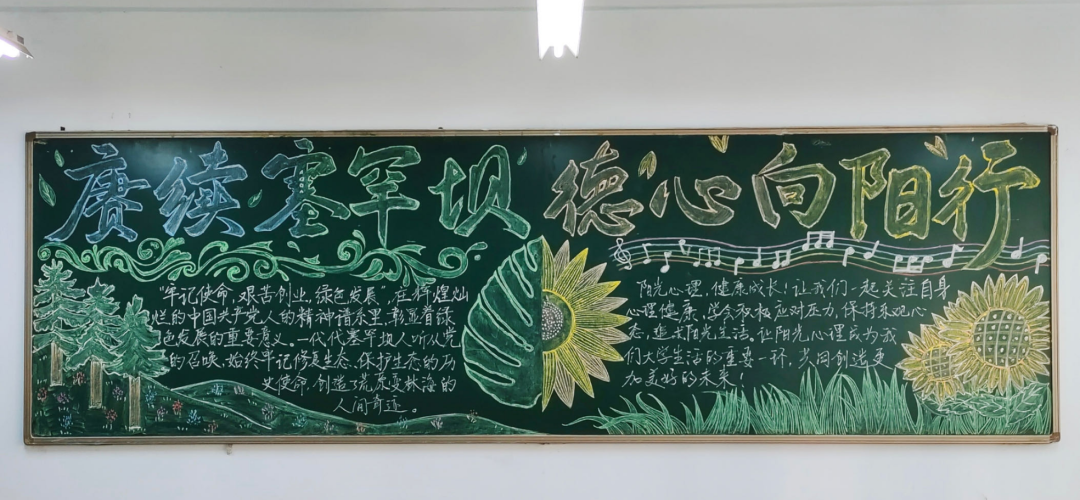 赓续塞罕坝
德心向阳行
"牢记使命,艰苦创业,绿色发展",在辉煌灿
烂的中国共产党人的精神谱系里,彰显着绿
色发展的重要意义。一代代塞罕坝人听从党
的召唤,始终牢记修复生态、保护生态的历
史使命,创造了荒原变林海的
人间奇迹。
阳光心理,健康成长!让我们一起关注自身
心理健康,学会积极应对压力,保持乐观心
态,追求阳光生活。让阳光心理成为我
们大学生活的重要一环,共同创造更
加美好的未来!